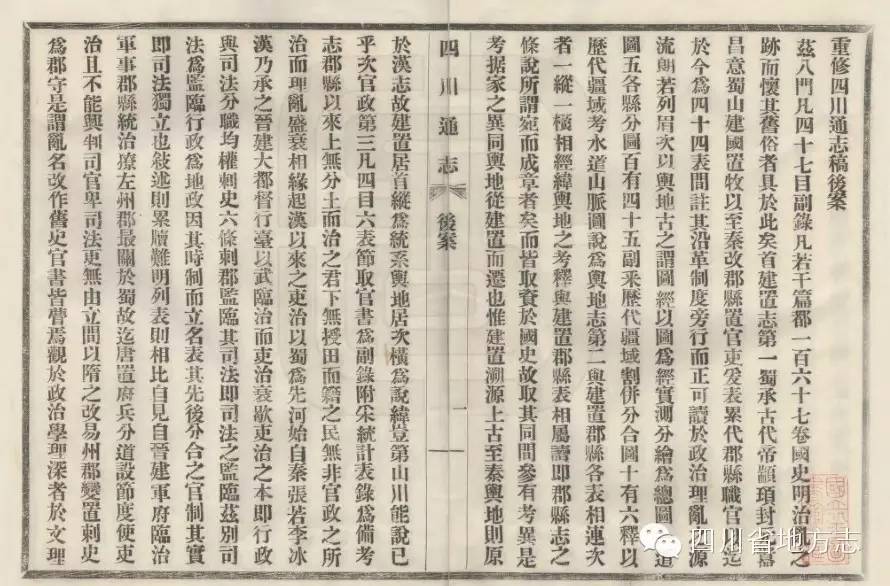 重修四川通志稿後案
茲八門凡四十七目副錄凡若干篇都一百六十七卷國史明治亂之
跡而懷其舊俗者具於此矣首建置志第一蜀承古代帝顓頊封
昌意蜀山建國置牧以至秦改郡縣置官吏爰表累代郡縣職官
於今為四十四表間註其沿革制度旁行而正可讀於政治理亂源
流朗若列眉次以輿地古之謂圖經以圖為經實測分繪為總圖道
圖五各縣分圖百有四十五副釆歷代疆域割併分合圖十有六釋以
歷代疆域考水道山脈圖說為輿地志第二與建置郡縣各表相連次
者一縱一橫相經緯輿地之考釋與建置郡縣表相屬讀即郡縣志之
條說所謂宛而成章者矣而皆取資於國史故取其同間參有考異是
考据家之異同輿地從建置而遷也惟建置溯源上古至秦輿地則原
四川通志
後案
一
於漢志故建置居首縱為統系輿地居次橫為說緯豈第山川能說已
乎次官政第三凡四目六表節取官書為副錄附采統計表錄為備考
志郡縣以來上無分土而治之君下無授田而籍之民無非官政之所
治而理亂盛衰相緣起漢以來之吏治以蜀為先河始自秦張若李冰
漢乃承之晉建大都督行臺以武臨治而吏治衰歇吏治之本即行政
與司法分職均權刺史六條刺郡監臨其司法即司法之監臨茲別司
法為監臨行政為地政因其時制而立名表其先後分合之官制其實
即司法獨立也敍述則累牘難明列表則相比自見自晉建軍府臨治
軍事郡縣統治獠左州郡最關於蜀故迄唐置府兵分道設節度使吏
治且不能興判司官卑司法更無由立間以隋之改易州郡變置刺史
為郡守是謂亂名改作舊史官書皆瞢焉觀於政治學理深者於文理
四川省地方志